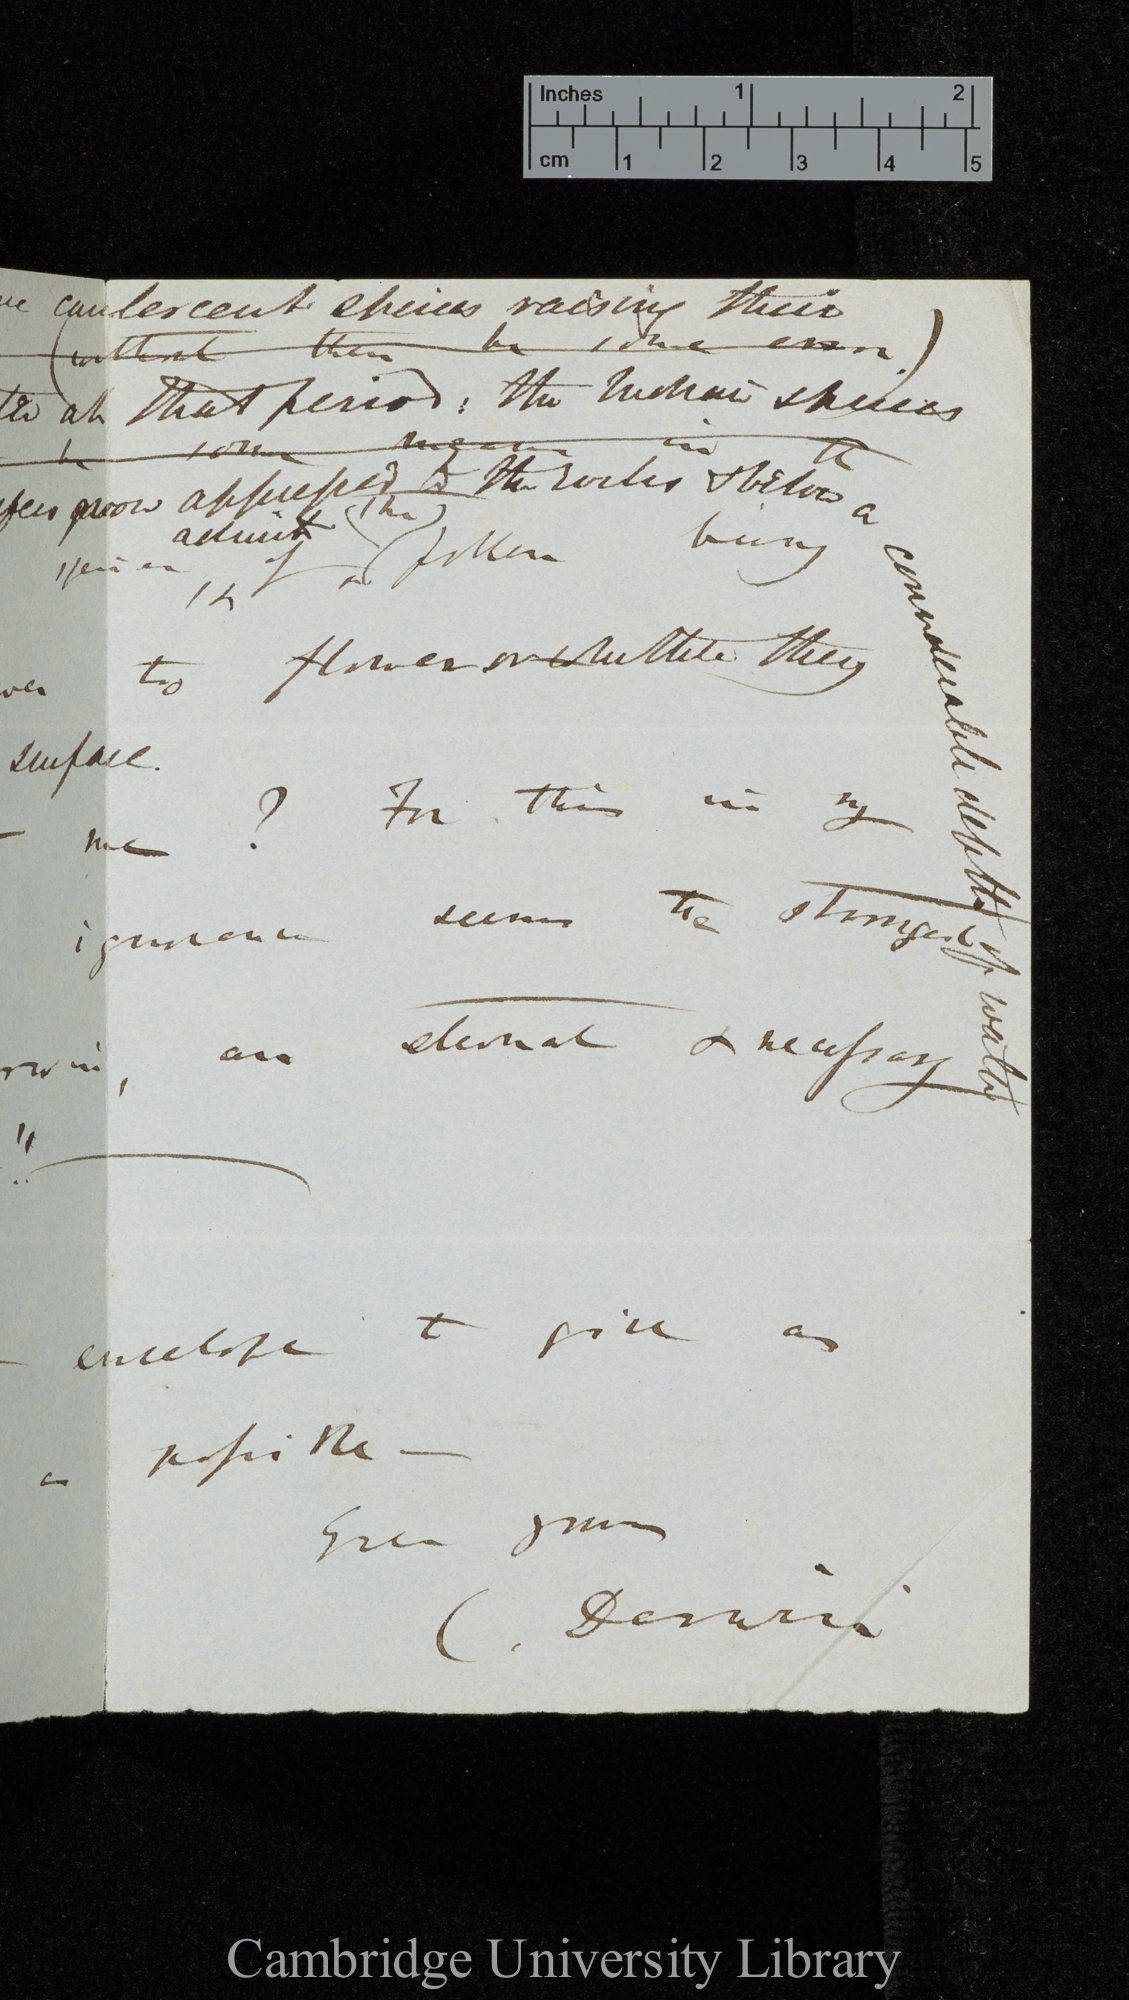 Inches 1 2
cm 1 2 3 4 5
caulescent species raising their
(without there be some error)
at that period; the Indian species
be some means in the
grow appressed to the rocks & below a considerable depth of water
admit
species of (the) pollen being
to flower or whether they
surface.
me ? For this in my
ignorance seems the strongest
an eternal & necessary
!!
envelope to give as
possible —
Ever yours
C. Darwin
Cambridge University Library